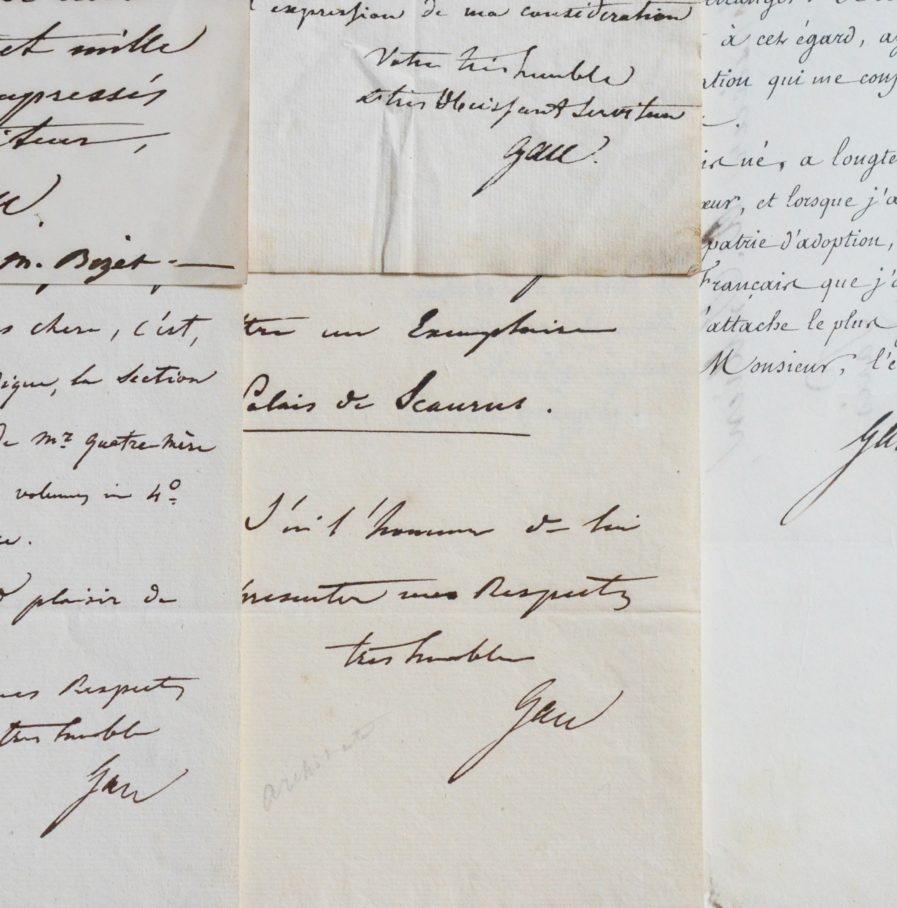 et mille
empressés
iteur,
m. Bizet
l'expression de ma considération
Votre très humble
et très Obéissant Serviteur
Gau.
à cet égard, a
ation qui me conf
né, a longte
œur, et lorsque j'a
patrie d'adoption,
Français que j'
'attache le plus
Monsieur, l'e
Ga
s chere, c'est,
ique, la Section
de mr. Quatremère
volumes in 4o
plaisir de
mes Respects
très humble
Gau
tre un Exemplaire
Palais de Scaurus.
J'ai l'honneur de lui
présenter mes Respects
très humble
Gau
architecte